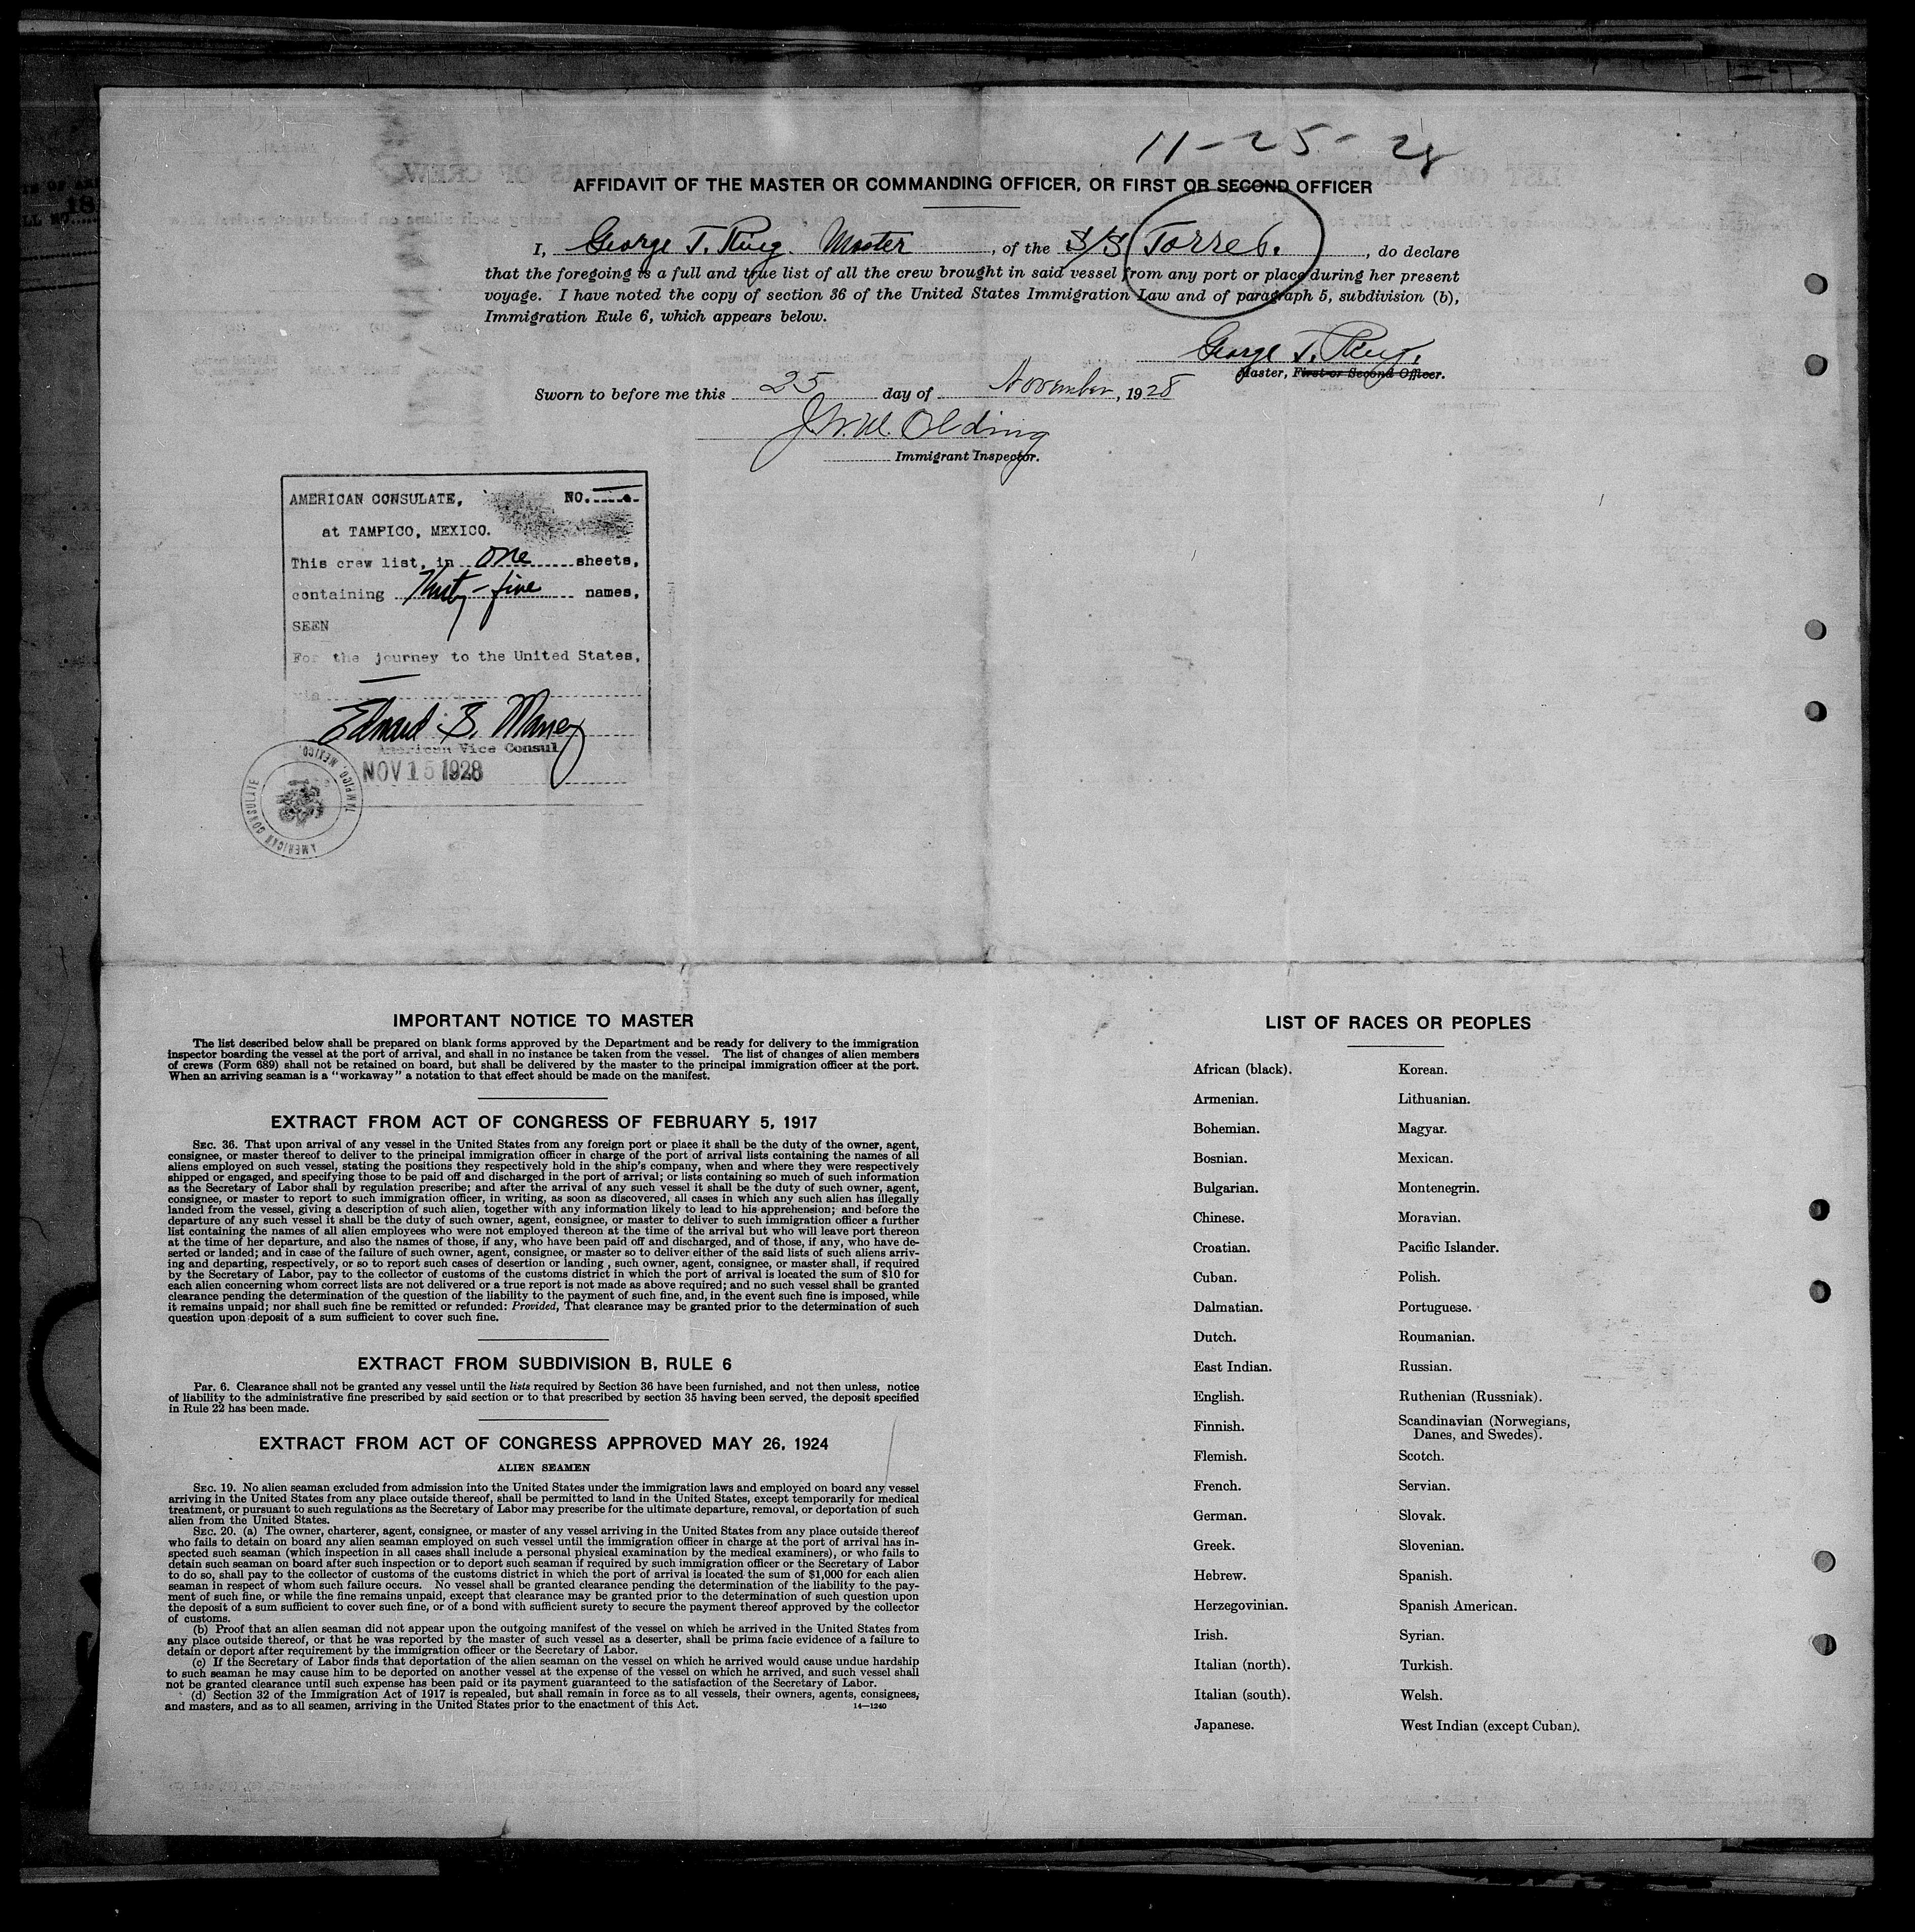 11-25-28
AFFIDAVIT OF THE MASTER OR COMMANDING OFFICER, OR FIRST OR SECOND OFFICER
I, George T. King. Master, of the S/S Torres., do declare
that the foregoing is a full and true list of all the crew brought in said vessel from any port or place during her present
voyage. I have noted the copy of section 36 of the United States Immigration Law and of paragraph 5, subdivision (b),
Immigration Rule 6, which appears below.
George T. King.
Master, First or Second Officer.
Sworn to before me this 25 day of November, 1928
Olding
Immigrant Inspector.
AMERICAN CONSULATE, NO.
at TAMPICO, MEXICO.
This crew list, in one sheets,
containing Thirty-five names,
SEEN
For the journey to the United States,
via
Edward S. Maney
American Vice Consul
NOV 15 1928
AMERICAN CONSULATE TAMPICO, MEXICO.
IMPORTANT NOTICE TO MASTER
The list described below shall be prepared on blank forms approved by the Department and be ready for delivery to the immigration
inspector boarding the vessel at the port of arrival, and shall in no instance be taken from the vessel. The list of changes of alien members
of crews (Form 689) shall not be retained on board, but shall be delivered by the master to the principal immigration officer at the port.
When an arriving seaman is a "workaway" a notation to that effect should be made on the manifest.
EXTRACT FROM ACT OF CONGRESS OF FEBRUARY 5, 1917
SEC. 36. That upon arrival of any vessel in the United States from any foreign port or place it shall be the duty of the owner, agent,
consignee, or master thereof to deliver to the principal immigration officer in charge of the port of arrival lists containing the names of all
aliens employed on such vessel, stating the positions they respectively hold in the ship's company, when and where they were respectively
shipped or engaged, and specifying those to be paid off and discharged in the port of arrival; or lists containing so much of such information
as the Secretary of Labor shall by regulation prescribe; and after the arrival of any such vessel it shall be the duty of such owner, agent,
consignee, or master to report to such immigration officer, in writing, as soon as discovered, all cases in which any such alien has illegally
landed from the vessel, giving a description of such alien, together with any information likely to lead to his apprehension; and before the
departure of any such vessel it shall be the duty of such owner, agent, consignee, or master to deliver to such immigration officer a further
list containing the names of all alien employees who were not employed thereon at the time of the arrival but who will leave port thereon
at the time of her departure, and also the names of those, if any, who have been paid off and discharged, and of those, if any, who have de-
serted or landed; and in case of the failure of such owner, agent, consignee, or master so to deliver either of the said lists of such aliens arriv-
ing and departing, respectively, or so to report such cases of desertion or landing , such owner, agent, consignee, or master shall, if required
by the Secretary of Labor, pay to the collector of customs of the customs district in which the port of arrival is located the sum of $10 for
each alien concerning whom correct lists are not delivered or a true report is not made as above required; and no such vessel shall be granted
clearance pending the determination of the question of the liability to the payment of such fine, and, in the event such fine is imposed, while
it remains unpaid; nor shall such fine be remitted or refunded: Provided, That clearance may be granted prior to the determination of such
question upon deposit of a sum sufficient to cover such fine.
EXTRACT FROM SUBDIVISION B, RULE 6
Par. 6. Clearance shall not be granted any vessel until the lists required by Section 36 have been furnished, and not then unless, notice
of liability to the administrative fine prescribed by said section or to that prescribed by section 35 having been served, the deposit specified
in Rule 22 has been made.
EXTRACT FROM ACT OF CONGRESS APPROVED MAY 26, 1924
ALIEN SEAMEN
SEC. 19. No alien seaman excluded from admission into the United States under the immigration laws and employed on board any vessel
arriving in the United States from any place outside thereof, shall be permitted to land in the United States, except temporarily for medical
treatment, or pursuant to such regulations as the Secretary of Labor may prescribe for the ultimate departure, removal, or deportation of such
alien from the United States.
SEC. 20. (a) The owner, charterer, agent, consignee, or master of any vessel arriving in the United States from any place outside thereof
who fails to detain on board any alien seaman employed on such vessel until the immigration officer in charge at the port of arrival has in-
spected such seaman (which inspection in all cases shall include a personal physical examination by the medical examiners), or who fails to
detain such seaman on board after such inspection or to deport such seaman if required by such immigration officer or the Secretary of Labor
to do so, shall pay to the collector of customs of the customs district in which the port of arrival is located the sum of $1,000 for each alien
seaman in respect of whom such failure occurs. No vessel shall be granted clearance pending the determination of the liability to the pay-
ment of such fine, or while the fine remains unpaid, except that clearance may be granted prior to the determination of such question upon
the deposit of a sum sufficient to cover such fine, or of a bond with sufficient surety to secure the payment thereof approved by the collector
of customs.
(b) Proof that an alien seaman did not appear upon the outgoing manifest of the vessel on which he arrived in the United States from
any place outside thereof, or that he was reported by the master of such vessel as a deserter, shall be prima facie evidence of a failure to
detain or deport after requirement by the immigration officer or the Secretary of Labor.
(c) If the Secretary of Labor finds that deportation of the alien seaman on the vessel on which he arrived would cause undue hardship
to such seaman he may cause him to be deported on another vessel at the expense of the vessel on which he arrived, and such vessel shall
not be granted clearance until such expense has been paid or its payment guaranteed to the satisfaction of the Secretary of Labor.
(d) Section 32 of the Immigration Act of 1917 is repealed, but shall remain in force as to all vessels, their owners, agents, consignees,
and masters, and as to all seamen, arriving in the United States prior to the enactment of this Act. 14—1240
LIST OF RACES OR PEOPLES
African (black).
Armenian.
Bohemian.
Bosnian.
Bulgarian.
Chinese.
Croatian.
Cuban.
Dalmatian.
Dutch.
East Indian.
English.
Finnish.
Flemish.
French.
German.
Greek.
Hebrew.
Herzegovinian.
Irish.
Italian (north).
Italian (south).
Japanese.
Korean.
Lithuanian.
Magyar.
Mexican.
Montenegrin.
Moravian.
Pacific Islander.
Polish.
Portuguese.
Roumanian.
Russian.
Ruthenian (Russniak).
Scandinavian (Norwegians,
Danes, and Swedes).
Scotch.
Servian.
Slovak.
Slovenian.
Spanish.
Spanish American.
Syrian.
Turkish.
Welsh.
West Indian (except Cuban).